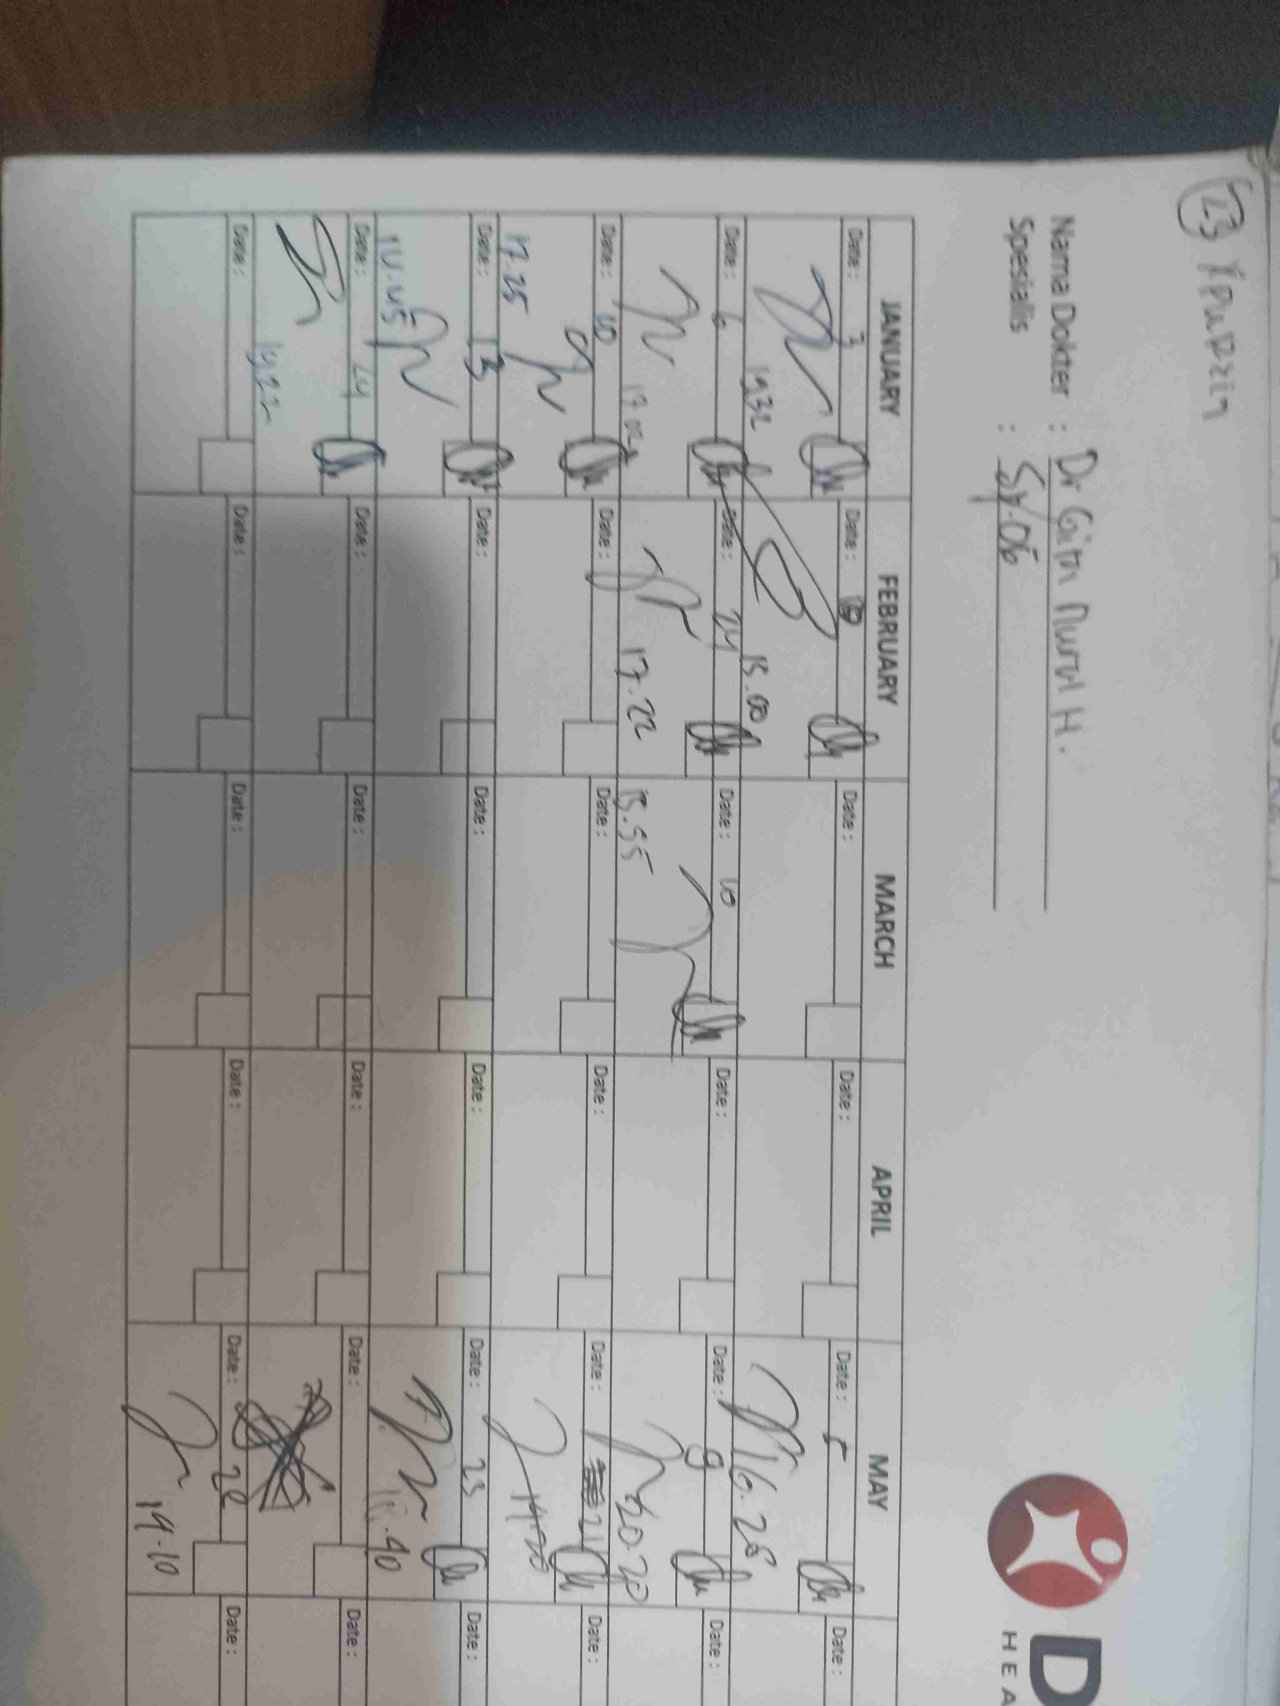 Nama Dokter : Dr Gita Nurul H.
Spesialis : Sp.OG
D
HEA
JANUARY FEBRUARY MARCH APRIL MAY
Date: 3 Date: Date: Date: Date: 5 Date:
19.32 15.00 16.28
Date: 6 Date: 24 Date: 10 Date: Date: 9 Date:
17.02 17.22 15.55 20.20
Date: 10 Date: Date: Date: Date: 21 Date:
17.25 19.20
Date: 13 Date: Date: Date: Date: 23 Date:
10.45 .40
Date: 24 Date: Date: Date: Date: Date:
19.22
Date: Date: Date: Date: Date: 28 Date:
19.10